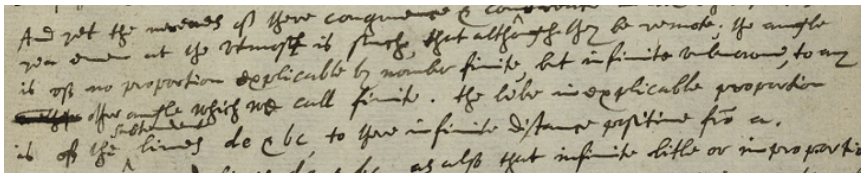 And yet the nereness of there congruence & concurrence
yea even at the utmost is such, that although they be remote, the angle
is of no proportion explicable by number finite, but infinite unknowne, to any
other angle which we call finite. the like inexplicable proportion
is of the subtendent lines de & bc, to there infinite distance positive frō a.
as also that infinite litle or improportio